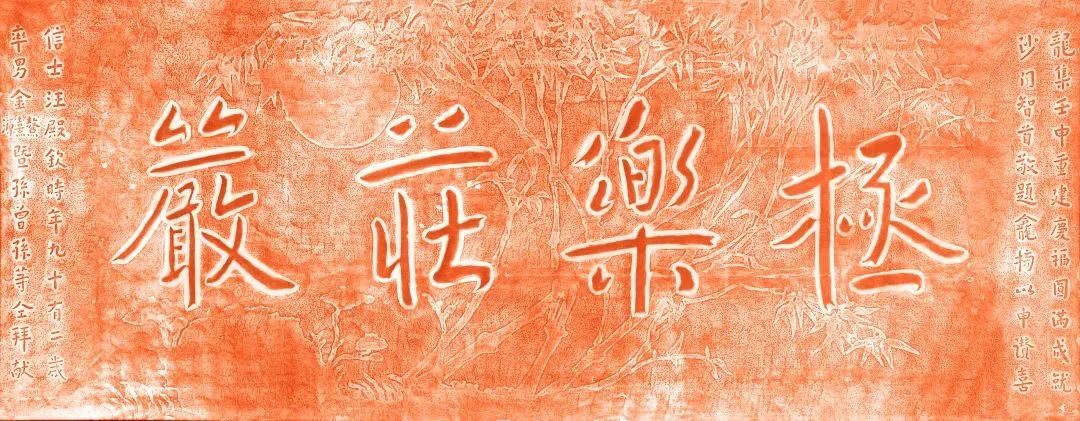 龍集壬申重建慶福圓滿成就
沙门智首敬題龕楣以申贊喜
極樂莊嚴
信士汪殿欽時年九十有二歲
率男金暨孫曾孫等仝拜献